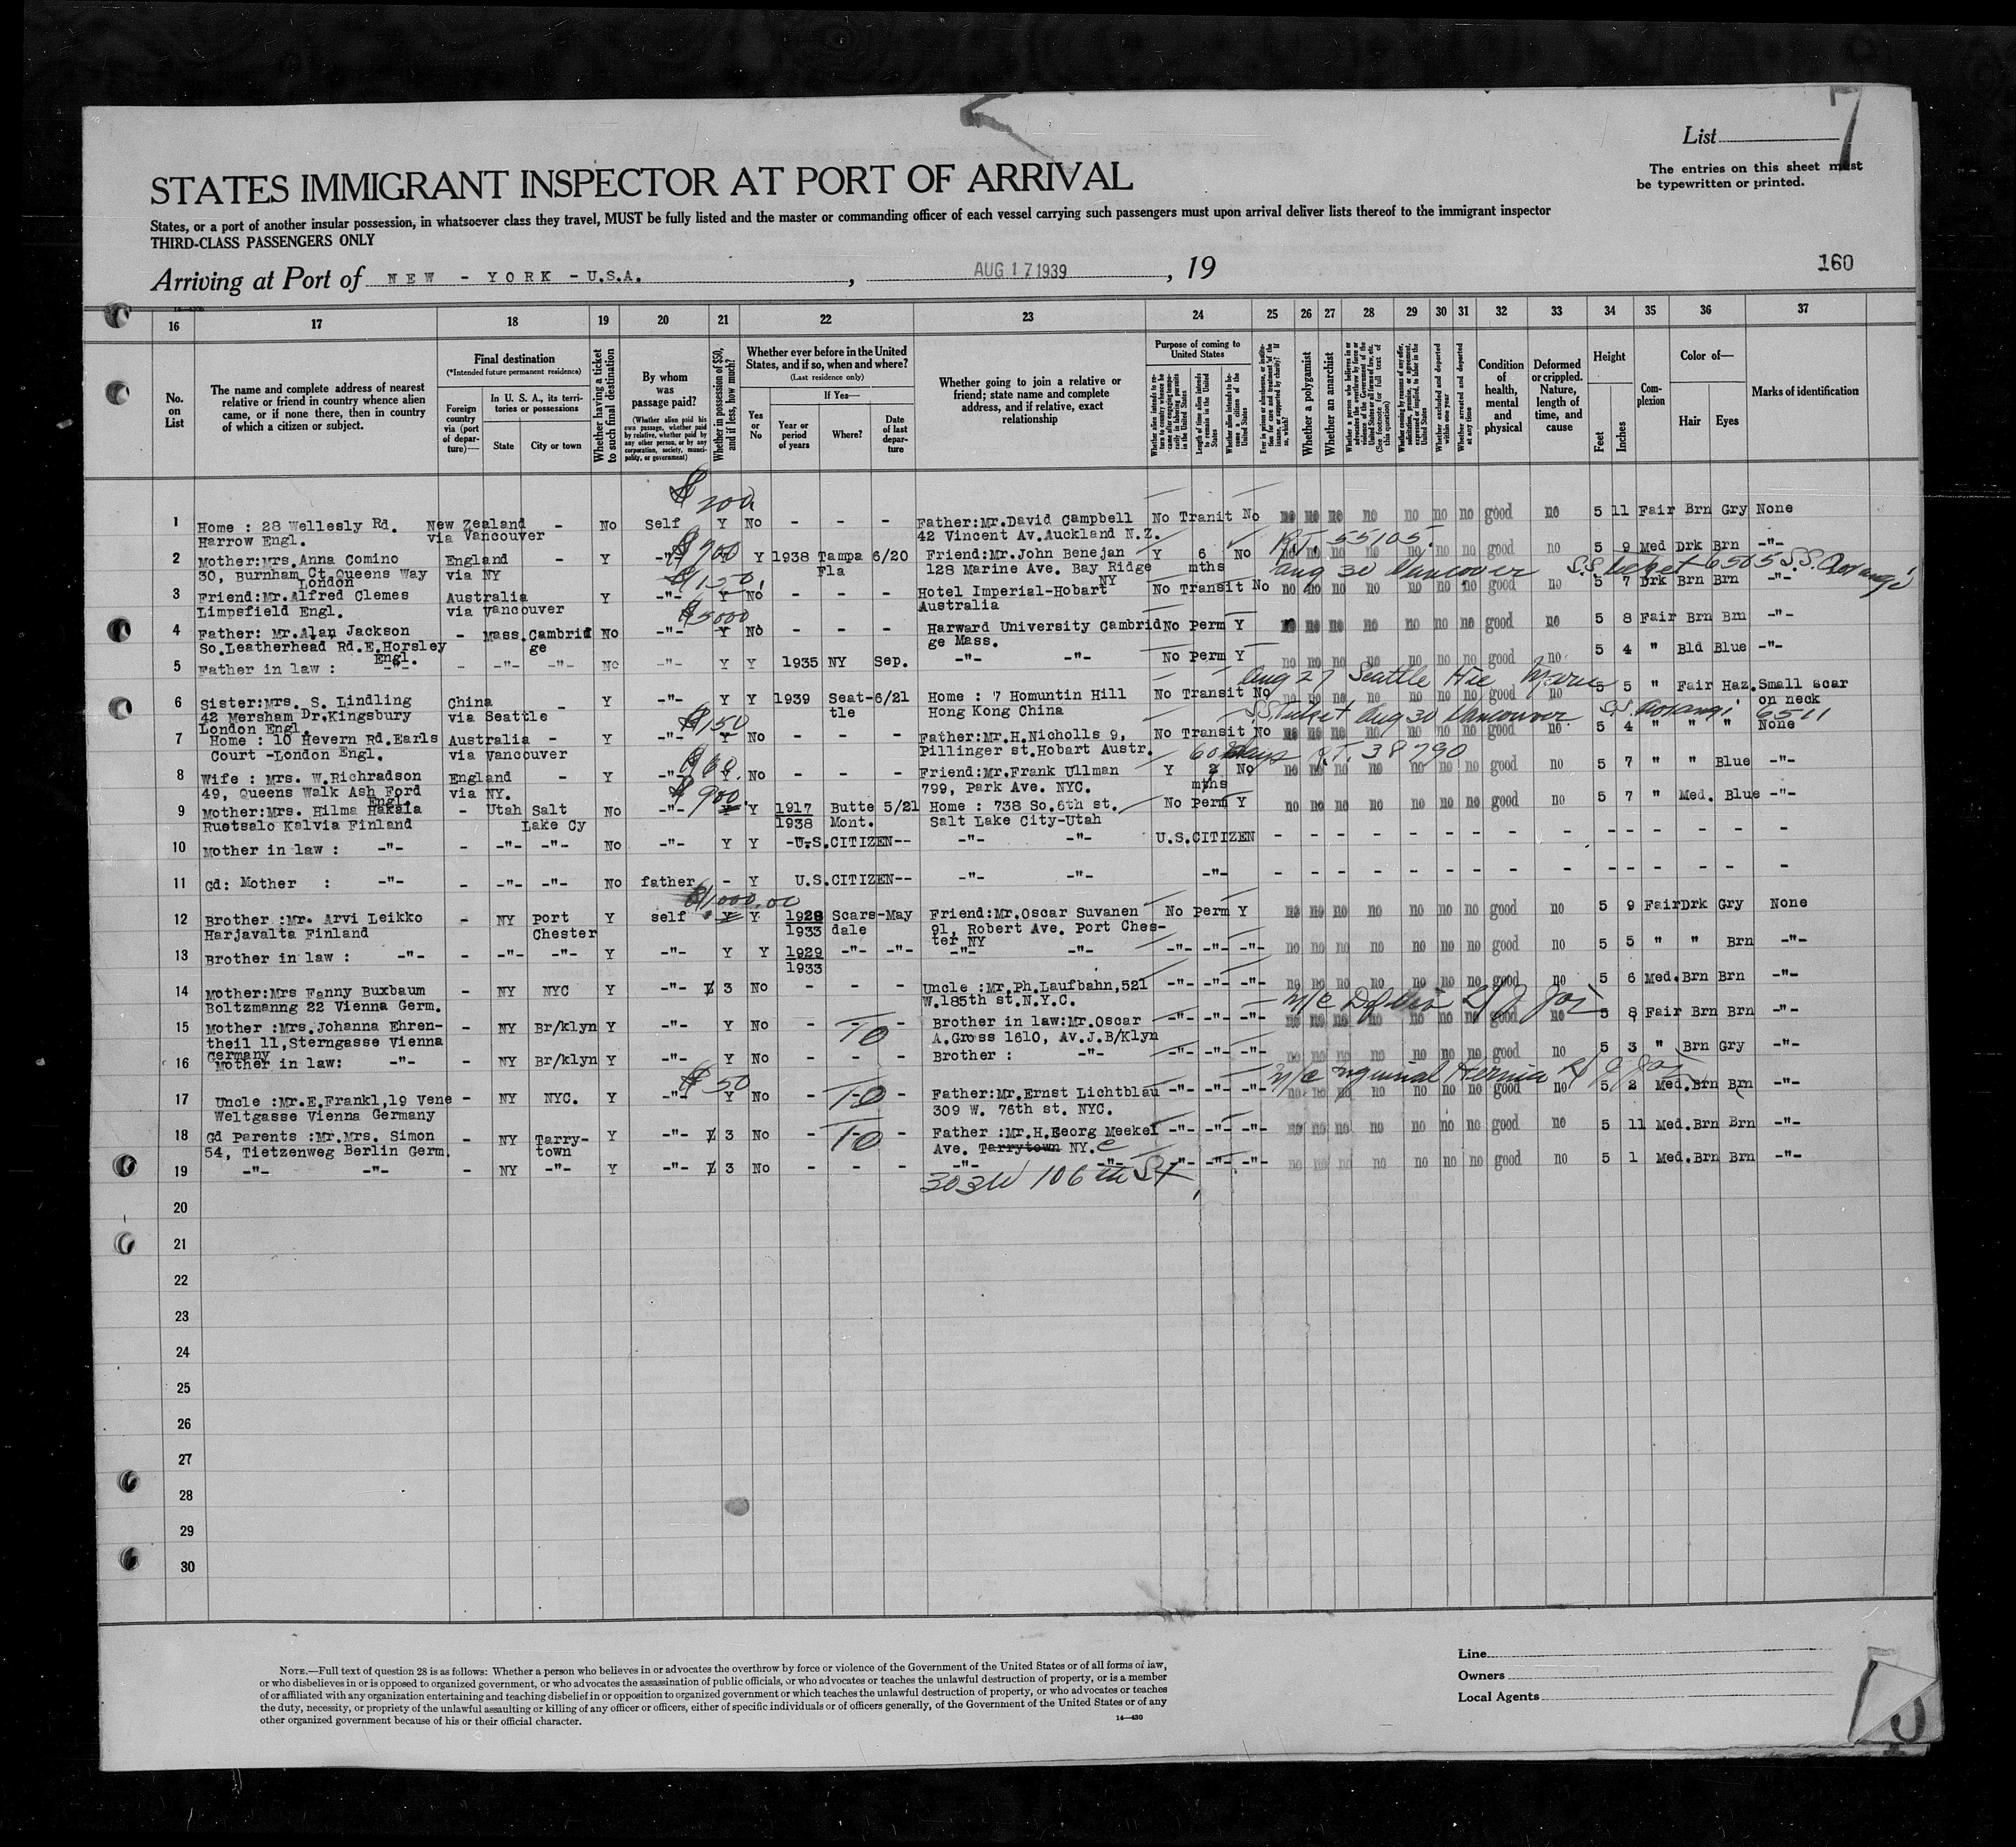 List 7
The entries on this sheet must
be typewritten or printed.
STATES IMMIGRANT INSPECTOR AT PORT OF ARRIVAL
States, or a port of another insular possession, in whatsoever class they travel, MUST be fully listed and the master or commanding officer of each vessel carrying such passengers must upon arrival deliver lists thereof to the immigrant inspector
THIRD-CLASS PASSENGERS ONLY
Arriving at Port of NEW - YORK - U.S.A. , AUG 17 1939 , 19
160
16 17 18 19 20 21 22 23 24 25 26 27 28 29 30 31 32 33 34 35 36 37
No. on List
The name and complete address of nearest relative or friend in country whence alien came, or if none there, then in country of which a citizen or subject.
Final destination
(*Intended future permanent residence)
Foreign country via (port of departure)—
In U. S. A., its territories or possessions
State City or town
Whether having a ticket to such final destination
By whom was passage paid?
(Whether alien paid his own passage, whether paid by relative, whether paid by any other person, or by any corporation, society, municipality, or government)
Whether in possession of $50, and if less, how much?
Whether ever before in the United States, and if so, when and where?
(Last residence only)
Yes or No
If Yes—
Year or period of years Where? Date of last departure
Whether going to join a relative or friend; state name and complete address, and if relative, exact relationship
Purpose of coming to United States
Length of time alien intends to remain in the United States
Whether alien intends to become a citizen of the United States
Whether a polygamist
Whether an anarchist
Whether excluded and deported within one year
Whether arrested and deported at any time
Condition of health, mental and physical
Deformed or crippled. Nature, length of time, and cause
Height
Feet Inches
Complexion
Color of—
Hair Eyes
Marks of identification
$200
1 Home : 28 Wellesly Rd. New Zealand - No Self Y No - - - Father:Mr.David Campbell No Tranit No no no no no no no no good no 5 11 Fair Brn Gry None
Harrow Engl. via Vancouver 42 Vincent Av.Auckland N.Z.
$700 R.T. 55105.
2 Mother:Mrs.Anna Comino England - Y -"- Y Y 1938 Tampa 6/20 Friend:Mr.John Benejan Y 6 No no no no no no no no good no 5 9 Med Drk Brn -"-
30, Burnham Ct.Queens Way via NY Fla 128 Marine Ave. Bay Ridge mths
London NY
$150. Aug 30 Vancouver S.S. ticket 6505 S.S. Aorangi
3 Friend:Mr.Alfred Clemes Australia Y -"- Y No - - - Hotel Imperial-Hobart No Transit No no no no no no no no good no 5 7 Drk Brn Brn -"-
Limpsfield Engl. via Vancouver Australia
$5000
4 Father: Mr.Alan Jackson - Mass. Cambrid No -"- Y No - - - Harward University Cambrid No Perm Y no no no no no no no good no 5 8 Fair Brn Brn -"-
So.Leatherhead Rd.E.Horsley ge ge Mass.
Engl.
5 Father in law : -"- - -"- -"- No -"- Y Y 1935 NY Sep. -"- -"- No Perm Y no no no no no no no good no 5 4 " Bld Blue -"-
Aug 27 Seattle Hie Maru
6 Sister:Mrs. S. Lindling China - Y -"- Y Y 1939 Seat- 6/21 Home : 7 Homuntin Hill No Transit No no no no no no no no good no 5 5 " Fair Haz. Small scar
42 Mersham Dr.Kingsbury via Seattle tle Hong Kong China on neck
London Engl.
$150 S.S. Ticket Aug 30 Vancouver S.S. Aorangi 6511
7 Home : 10 Hevern Rd.Earls Australia - Y -"- Y No - - - Father:Mr.H.Nicholls 9, No Transit No no no no no no no no good no 5 4 " " " None
Court -London Engl. via Vancouver Pillinger st.Hobart Austr.
60 days R.T. 38790
8 Wife : Mrs. W.Richradson England - Y -"- Y. No - - - Friend:Mr.Frank Ullman Y 2 No no no no no no no no good no 5 7 " " Blue -"-
49, Queens Walk Ash Ford via NY. 799, Park Ave. NYC. mths
Engl.
$900
9 Mother:Mrs. Hilma Hakala - Utah Salt No -"- Y Y 1917 Butte 5/21 Home : 738 So.6th st. No Perm Y no no no no no no no good no 5 7 " Med. Blue -"-
Ruetsalo Kalvia Finland Lake Cy 1938 Mont. Salt Lake City-Utah
10 Mother in law : -"- - -"- -"- No -"- Y Y -U.S.CITIZEN-- -"- -"- U.S.CITIZEN - - - - - - - - - - - - - - -
11 Gd: Mother : -"- - -"- -"- No father - Y U.S.CITIZEN-- -"- -"- -"- - - - - - - - - - - - - - - -
$1000.00
12 Brother :Mr. Arvi Leikko - NY Port Y self Y Y 1928 Scars- May Friend:Mr.Oscar Suvanen No Perm Y no no no no no no no good no 5 9 Fair Drk Gry None
Harjavalta Finland Chester 1933 dale 91, Robert Ave. Port Ches-
ter NY
13 Brother in law : -"- - -"- -"- Y -"- Y Y 1929 -"- -"- -"- -"- -"- -"- -"- no no no no no no no good no 5 5 " " Brn -"-
1933
14 Mother:Mrs Fanny Buxbaum - NY NYC Y -"- 3 No - - - Uncle :Mr.Ph.Laufbahn,521 -"- -"- -"- no no no no no no no good no 5 6 Med. Brn Brn -"-
Boltzmanng 22 Vienna Germ. W.185th st.N.Y.C.
15 Mother :Mrs.Johanna Ehren- - NY Br/klyn Y -"- Y No - - Brother in law:Mr.Oscar -"- -"- -"- no no no no no no no good no 5 8 Fair Brn Brn -"-
theil 11,Sterngasse Vienna A.Gross 1610, Av.J.B/Klyn
Germany
16 Mother in law: -"- - NY Br/klyn Y -"- Y No - - - Brother : -"- -"- -"- -"- no no no no no no no good no 5 3 " Brn Gry -"-
$50 M/C Inguinal Hernia
17 Uncle :Mr.E.Frankl,19 Vene - NY NYC. Y -"- Y No - - Father:Mr.Ernst Lichtblau -"- -"- -"- no no no no no no no good no 5 2 Med. Brn Brn -"-
Weltgasse Vienna Germany 309 W. 76th st. NYC.
18 Gd Parents :Mr.Mrs. Simon - NY Tarry- Y -"- 3 No - - Father :Mr.H.Georg Meekel -"- -"- -"- no no no no no no no good no 5 11 Med. Brn Brn -"-
54, Tietzenweg Berlin Germ. town Ave. Tarrytown NY.C
19 -"- -"- - NY -"- Y -"- 3 No - - - -"- -"- -"- -"- -"- no no no no no no no good no 5 1 Med. Brn Brn -"-
303 W 106th St
20
21
22
23
24
25
26
27
28
29
30
NOTE.—Full text of question 28 is as follows: Whether a person who believes in or advocates the overthrow by force or violence of the Government of the United States or of all forms of law,
or who disbelieves in or is opposed to organized government, or who advocates the assassination of public officials, or who advocates or teaches the unlawful destruction of property, or is a member
of or affiliated with any organization entertaining and teaching disbelief in or opposition to organized government or which teaches the unlawful destruction of property, or who advocates or teaches
the duty, necessity, or propriety of the unlawful assaulting or killing of any officer or officers, either of specific individuals or of officers generally, of the Government of the United States or of any
other organized government because of his or their official character.
14—430
Line
Owners
Local Agents